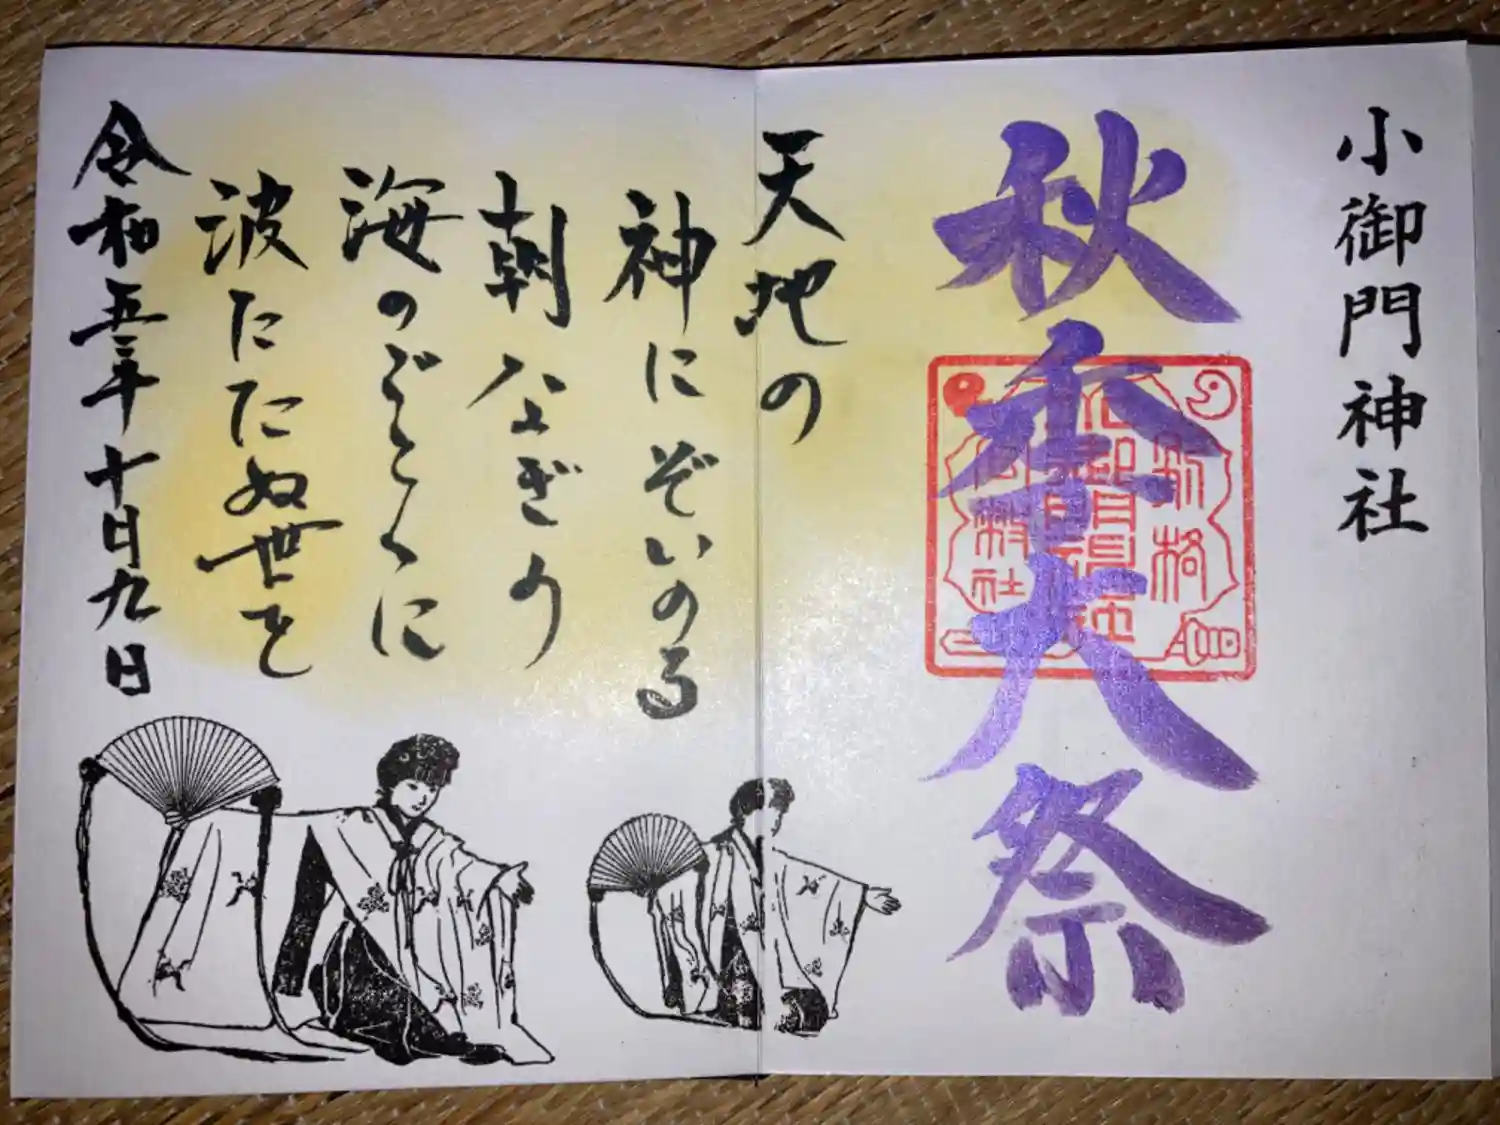 小御門神社
秋季大祭
別格
官幣社
天地の
神にぞいのる
朝なぎの
海のごとくに
波たたぬ世を
令和五年十月九日